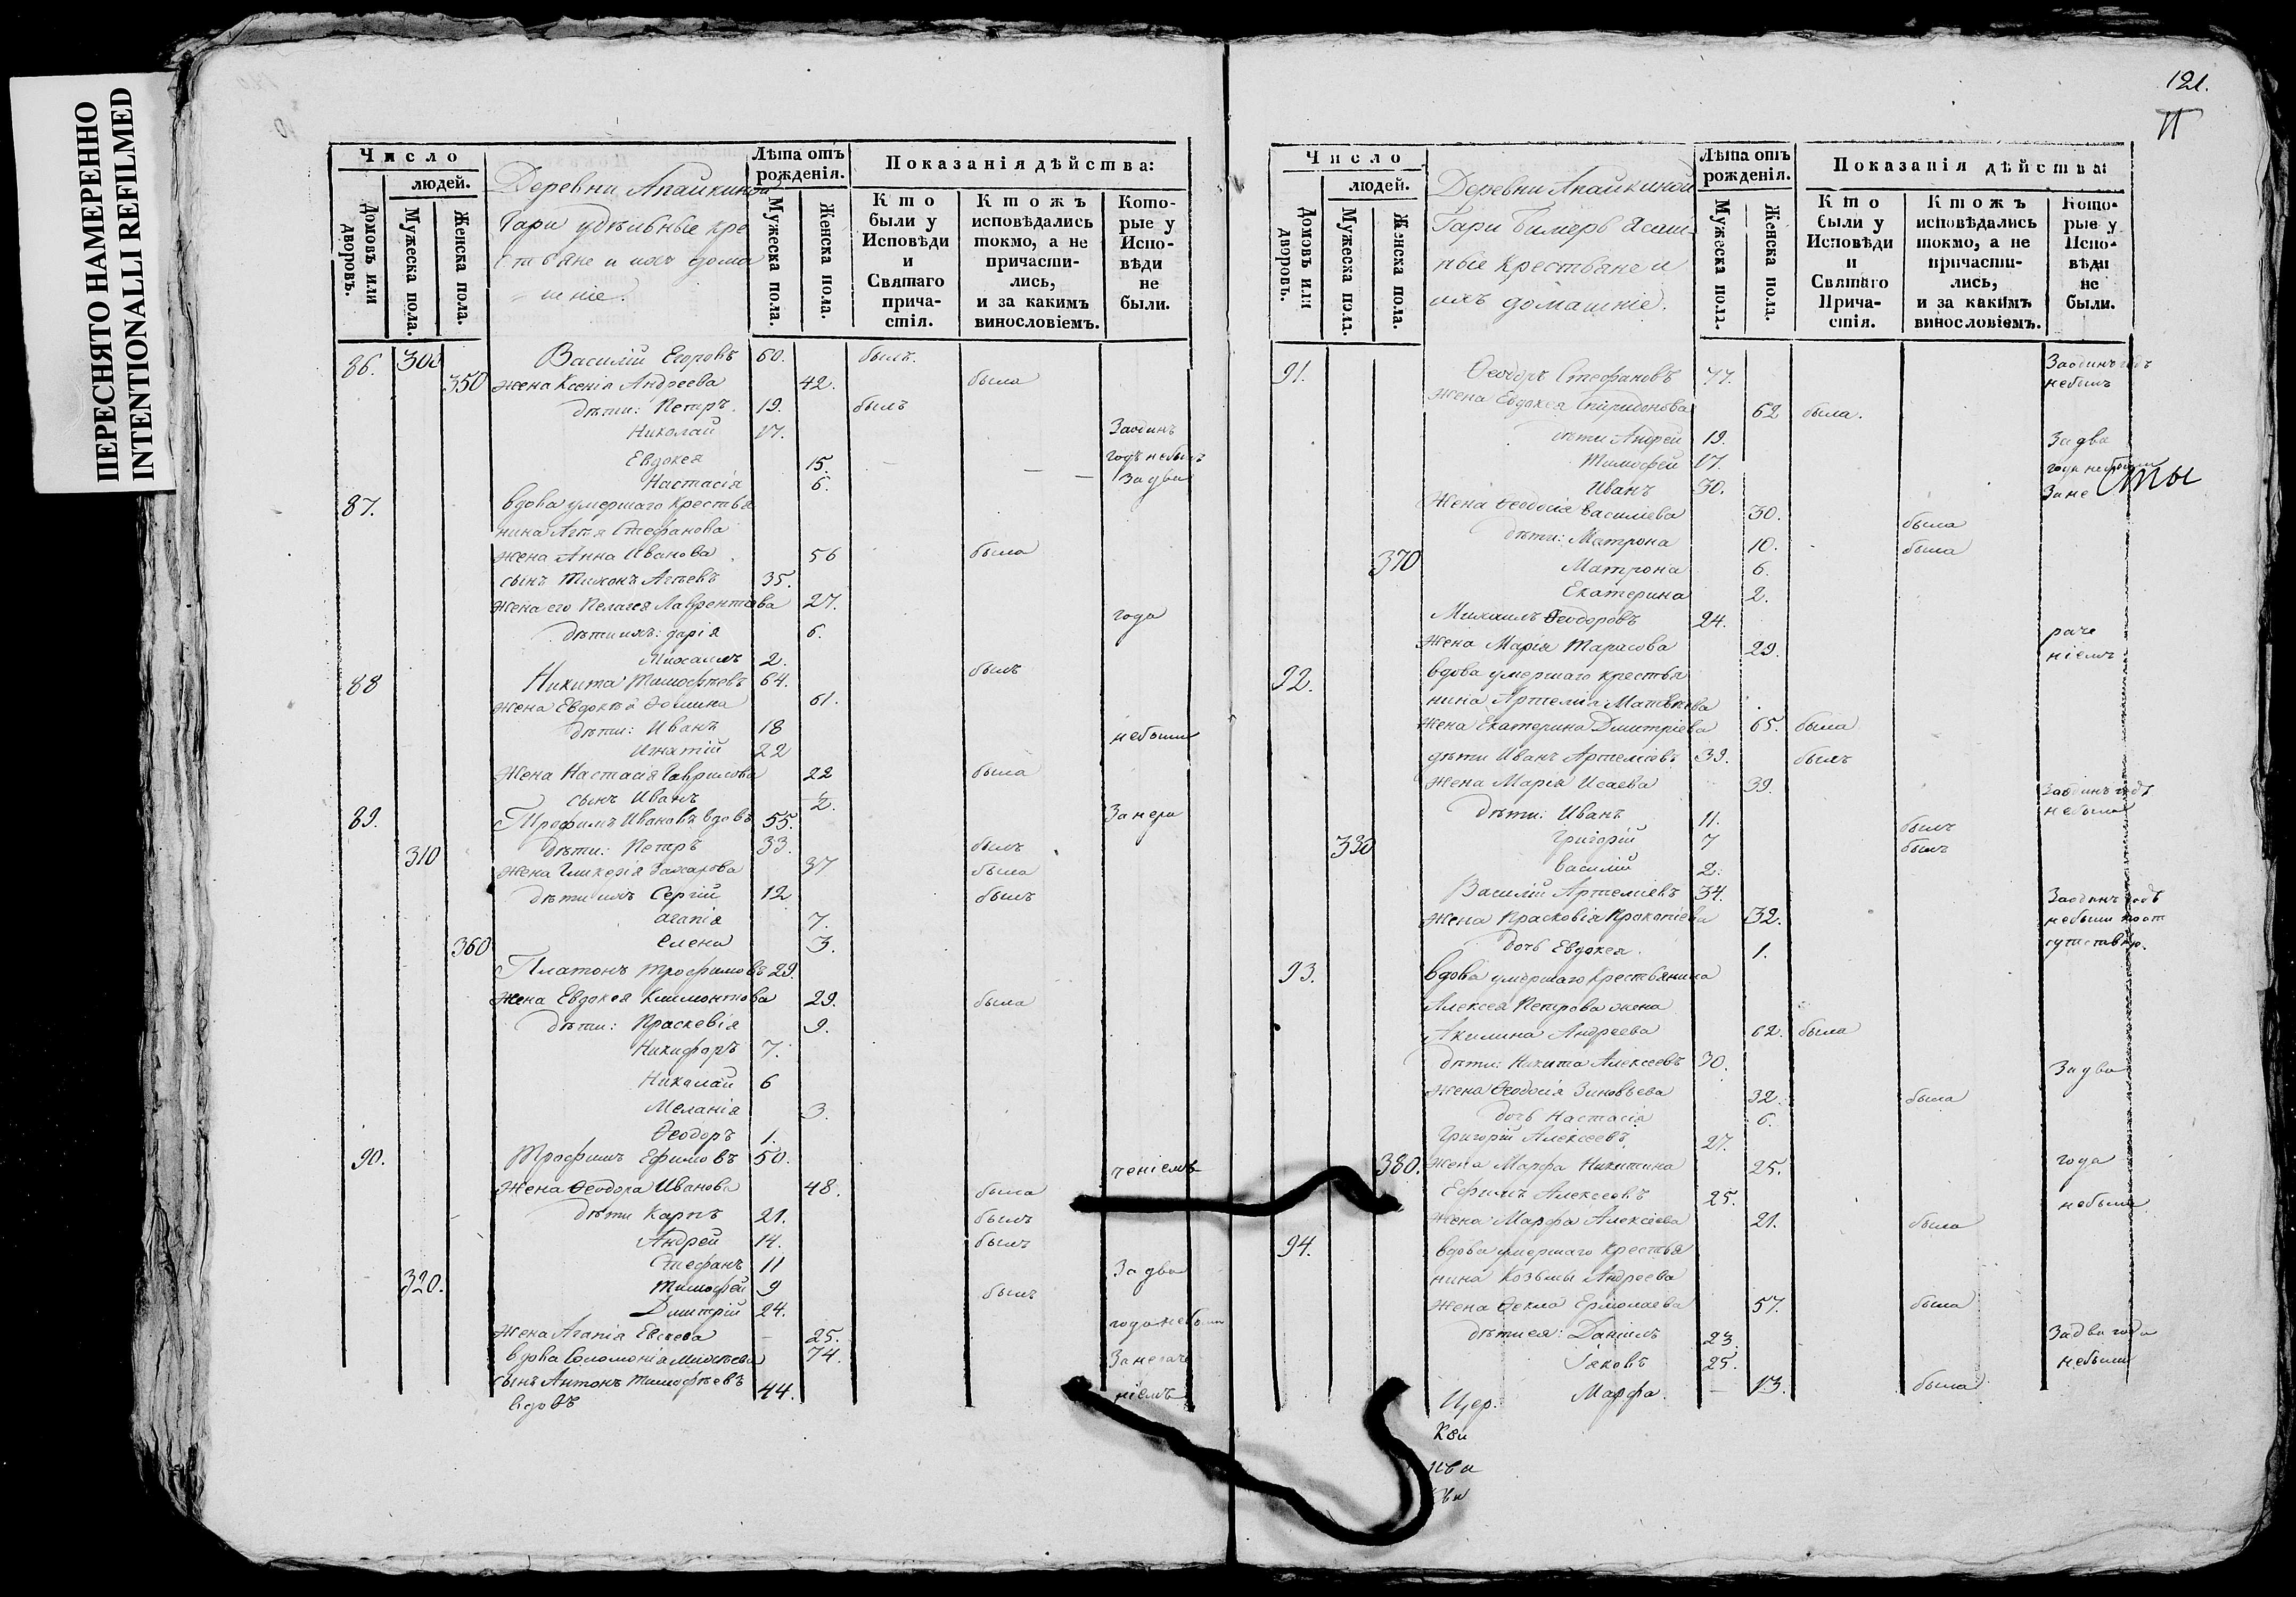 ПЕРЕСНЯТО НАМЕРЕННО
INTENTIONALLI REFILMED
Число
людей.
Домовъ или дворовъ.
Мужеска пола.
Женска пола.
Деревни Апайкиной
Гари удѣльные кре
стьяне и ихъ дома
шніе.
Лѣта отъ рожденія.
Мужеска пола.
Женска пола.
Показанія дѣйства:
Кто были у Исповѣди и Святаго причастія.
Ктожъ исповѣдались токмо, а не причастились, и за какимъ винословіемъ.
Которые у Исповѣди не были.
86. 300 Василій Егоровъ 60. былъ.
350 жена Ксенія Андреева 42. была
дѣти: Петръ. 19. былъ
Николай 17. Заодинъ
Евдокея 15. годъ небылъ
Настасія 6. За два
87. вдова умершаго крестья
нина Агѣя Стефанова
жена Анна Иванова 56 была
сынъ Тихонъ Агѣевъ 35.
жена его Пелагея Лаврентьева 27. года
дѣти ихъ: дарія 6.
Михаилъ 2.
88 Никита Тимофѣевъ 64. былъ
жена Евдокѣя 61.
дѣти: Иванъ 18 небыли
Игнатій 22
жена Настасія Гаврилова 22 была
сынъ Иванъ 2.
89. Трофимъ Ивановъ вдовъ 55. Занера
310 дѣти: Петръ 33. былъ
жена Гликерія Захарова 37 была
дѣти ихъ Сергій 12 былъ
агапія 7.
360 елена 3.
Платонъ Трофимовъ 29.
жена Евдокея Климонтова 29. была
дѣти: Праскевія 9.
Никифоръ 7.
Николай 6
Меланія 3.
Ѳеодоръ 1.
90. Трофимъ Ефимовъ 50. ченіемъ
жена Ѳеодора Иванова 48. была
дѣти Карпъ 21. былъ
Андрей 14. былъ
Стефанъ 11 За два
320. Тимофей 9 былъ
Дмитрій 24.
жена Агапія 25. года небыли
вдова Соломонія 74. Занерач
сынъ Антонъ Тимофѣевъ 44. ніемъ
вдовъ
121.
Число
людей.
Домовъ или дворовъ.
Мужеска пола.
Женска пола.
Деревни Апайкиной
Гари Бимеръ Ясаш
ные крестьяне и
ихъ домашніе.
Лѣта отъ рожденія.
Мужеска пола.
Женска пола.
Показанія дѣйства:
Кто были у Исповѣди и Святаго Причастія.
Ктожъ исповѣдались токмо, а не причастились, и за какимъ винословіемъ.
Которые у Исповѣди не были.
91. Ѳеодоръ Стефановъ 77. Заодинъ годъ небылъ
жена Евдокея Спиридонова 62 была.
дѣти Андрей 19. За два
Тимофей 17. года небыли
Иванъ 30. Зане
жена Ѳеодосія Василіева 30. была
дѣти: Матрона 10. была
370 Матрона 6.
Екатерина 2.
Михаилъ Ѳеодоровъ 24.
раче
жена Марія Тарасова 29. ніемъ
92. вдова умершаго крестья
нина Артемія Матвѣева
жена Екатерина Дмитріева 65. была
дѣти Иванъ Артеміевъ 39. былъ
жена Марія Исаева 39. Заодинъ годъ
дѣти: Иванъ 11. былъ небыла
330 Григорій 7 былъ
василій 2.
Василій Артеміевъ 34. Заодинъ годъ
жена Прасковія Прокопіева 32. небыли поот
дочь Евдокея. 1. сутствію.
93. вдова умершаго крестьянина
Алексея Петрова жена
Акилина Андреева 62. была
дѣти: Никита Алексеевъ 30. За два
жена Ѳеодосія Зиновьева 32. была
дочь Настасія 6.
Григорій Алексеевъ 27.
380. жена Марфа Никитина 25. года
Ефимъ Алексеевъ 25. небыли
жена Марфа Алексіева 21. была
94. вдова умершаго крестья
нина Козьмы Андреева
жена Ѳекла Ермолаева 57. была
дѣти ея: Даніилъ 23. За два года
Іаковъ 25. небыли
Марфа. 13. была
Цер.